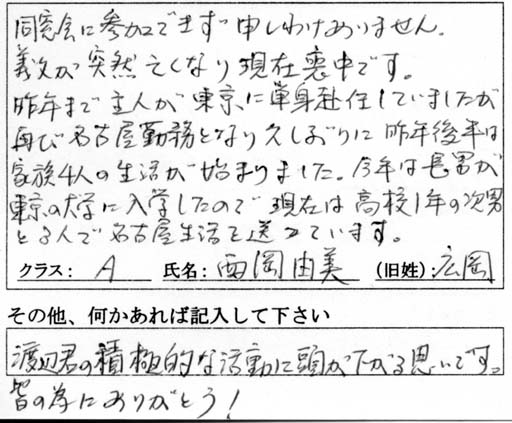 同窓会に参加できず申しわけありません。
義父が突然亡くなり現在喪中です。
昨年まで主人が東京に単身赴任していましたが
再び名古屋勤務となり久しぶりに昨年後半は
家族4人の生活が始まりました。今年は長男が
東京の大学に入学したので現在は高校1年の次男
と3人で名古屋生活を送っています。
クラス： A 氏名：西岡由美 （旧姓）：広岡
その他、何かあれば記入して下さい
渡辺君の積極的な活動に頭が下がる思いです。
皆の為にありがとう！